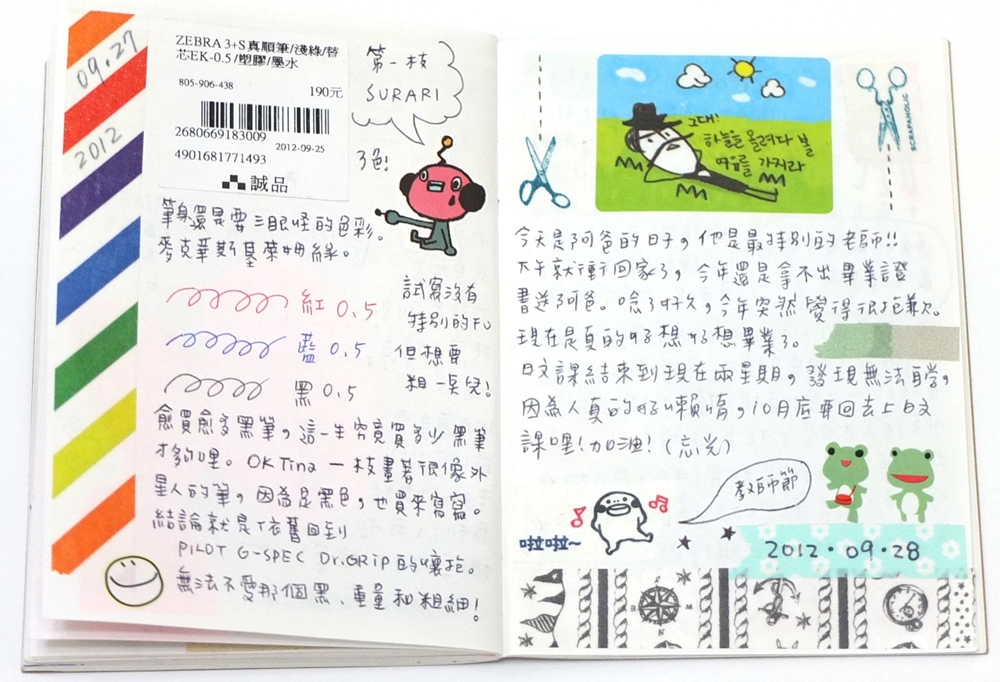 09.27
2012
ZEBRA 3+S真順筆/淺綠/替
芯EK-0.5/塑膠/墨水
805-906-438
190元
2680669183009
2012-09-25
4901681771493
誠品
第一枝
SURARI
3色!
筆身還是要三眼怪的色彩。
麥克華斯基萊姆綠。
紅 0.5
藍 0.5
黑 0.5
試寫沒有
特別的Fu
但想要
粗一點兒!
愈買愈多黑筆,這一生究竟買多少黑筆
才夠哩。OKTina 一枝畫著很像外
星人的筆,因為是黑色,也買來寫寫。
結論就是依舊回到
PILOT G-SPEC Dr.GRIP的懷抱。
無法不愛那個黑、重量和粗細!
그대!
하늘을 올려다 볼
여유를 가져라
SCRAPAHOLIC
今天是阿爸的日子,他是最特別的老師!!
下午就衝回家了,今年還是拿不出畢業證
書送阿爸。唸了好久,今年突然覺得很抱歉。
現在是真的好想好想畢業了。
日文課結束到現在兩星期,發現無法自學,
因為人真的好懶惰,10月底要回去上日文
課哩!加油!(忘光)
教師節
啦啦~
2012.09.28